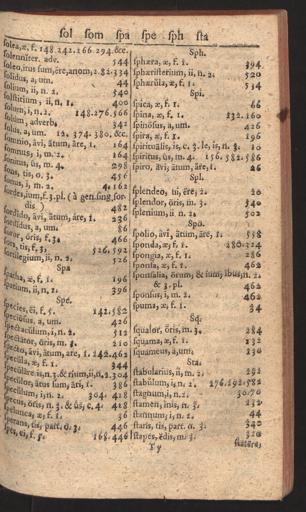 sol som spa spe sph sta
solea, æ, f. 148. 242. 166. 294. &c.
solenniter. adv. 544
soleo, itus sum, ēre, anom, 2. 82. 334
solidus, a, um. 44
solium, ii, n. 2. 540
solstitium, ii, n. 1. 400
solum, i, n. 2. 148. 276. 566
solum, adverb. 342
solus, a, um. 12. 374. 380. &c.
somnio, āvi, ātum, āre, 1. 164
somnus, i, m. 2. 164
sonitus, ūs, m. 4. 298
sons, tis, o. 3. 456
sonus, i, m. 2. 4. 162
sordes, ium, f. 3. pl. (à gen. sing. sor-
482
sordido, āvi, ātum, āre, 1. 236
sordidus, a, um. 86
soror, ōris, f. 3. 466
sors, tis, f. 3. 526. 592
sortilegium, ii, n. 2. 526
Spa
spatha, æ, f. 1. 196
spatium, ii, n. 2. 396
Spe.
species, ēi, f. 5. 142. 582
speciōsus, a, um. 426
spectaculum, i, n. 2. 512
spectātor, ōris, m. 3. 210
specto, āvi, ātum, are, 1. 242. 462
specula, æ, f. 1. 344
speculāre, is, n. 3. & rium, ii, n. 2. 304
speculor, ātus sum, āri, 1. 386
speculum, i, n. 2. 304. 418
specus, ōris, n. 3. & ūs, c. 4. 418
spelunca, æ, f. 1. 36
sperans, tis, part. o. 3. 446
spes, ei, f. 5. 168. 446
Sph.
sphæra, æ, f. 1. 394
sphæristerium, ii, n. 2. 520
sphærŭla, æ, f. 1. 534
Spi.
spica, æ, f. 1. 66
spina, æ, f. 1. 132. 160
spinōsus, a, um. 426
spira, æ, f. 1. 196
spirituālis, is, c. 3. le, is, n. 3. 10
spiritus, ūs, m. 4. 156. 582. 586
spiro, āvi, ātum, āre, 1. 26
Spl.
splendeo, ui, ēre, 2. 20
splendor, ōris, m. 3. 540
splenium, ii, n. 2. 502
Spo.
spolio, āvi, ātum, āre, 1. 558
sponda, æ, f. 1. 280. 324
spongia, æ, f. 1. 286
sponsa, æ, f. 1. 462
sponsalia, ōrum, & ium, ibus, n. 2.
& 3. pl. 462
sponsus, i, m. 2. 462
spuma, æ, f. 1. 34
Sq.
squalor, ōris, m. 3. 284
squama, æ, f. 1. 132
squameus, a, um. 230
Sta.
stabularius, ii, m. 2. 292
stabŭlum, i, n. 2. 276. 292. 582
stagnum, i, n. 2. 30. 70
stamen, inis, n. 3. 232
stannum, i, n. 2. 44
stans, tis, part. o. 3. 340
stapes, ĕdis, m. 3. 320
Yy
statēra,